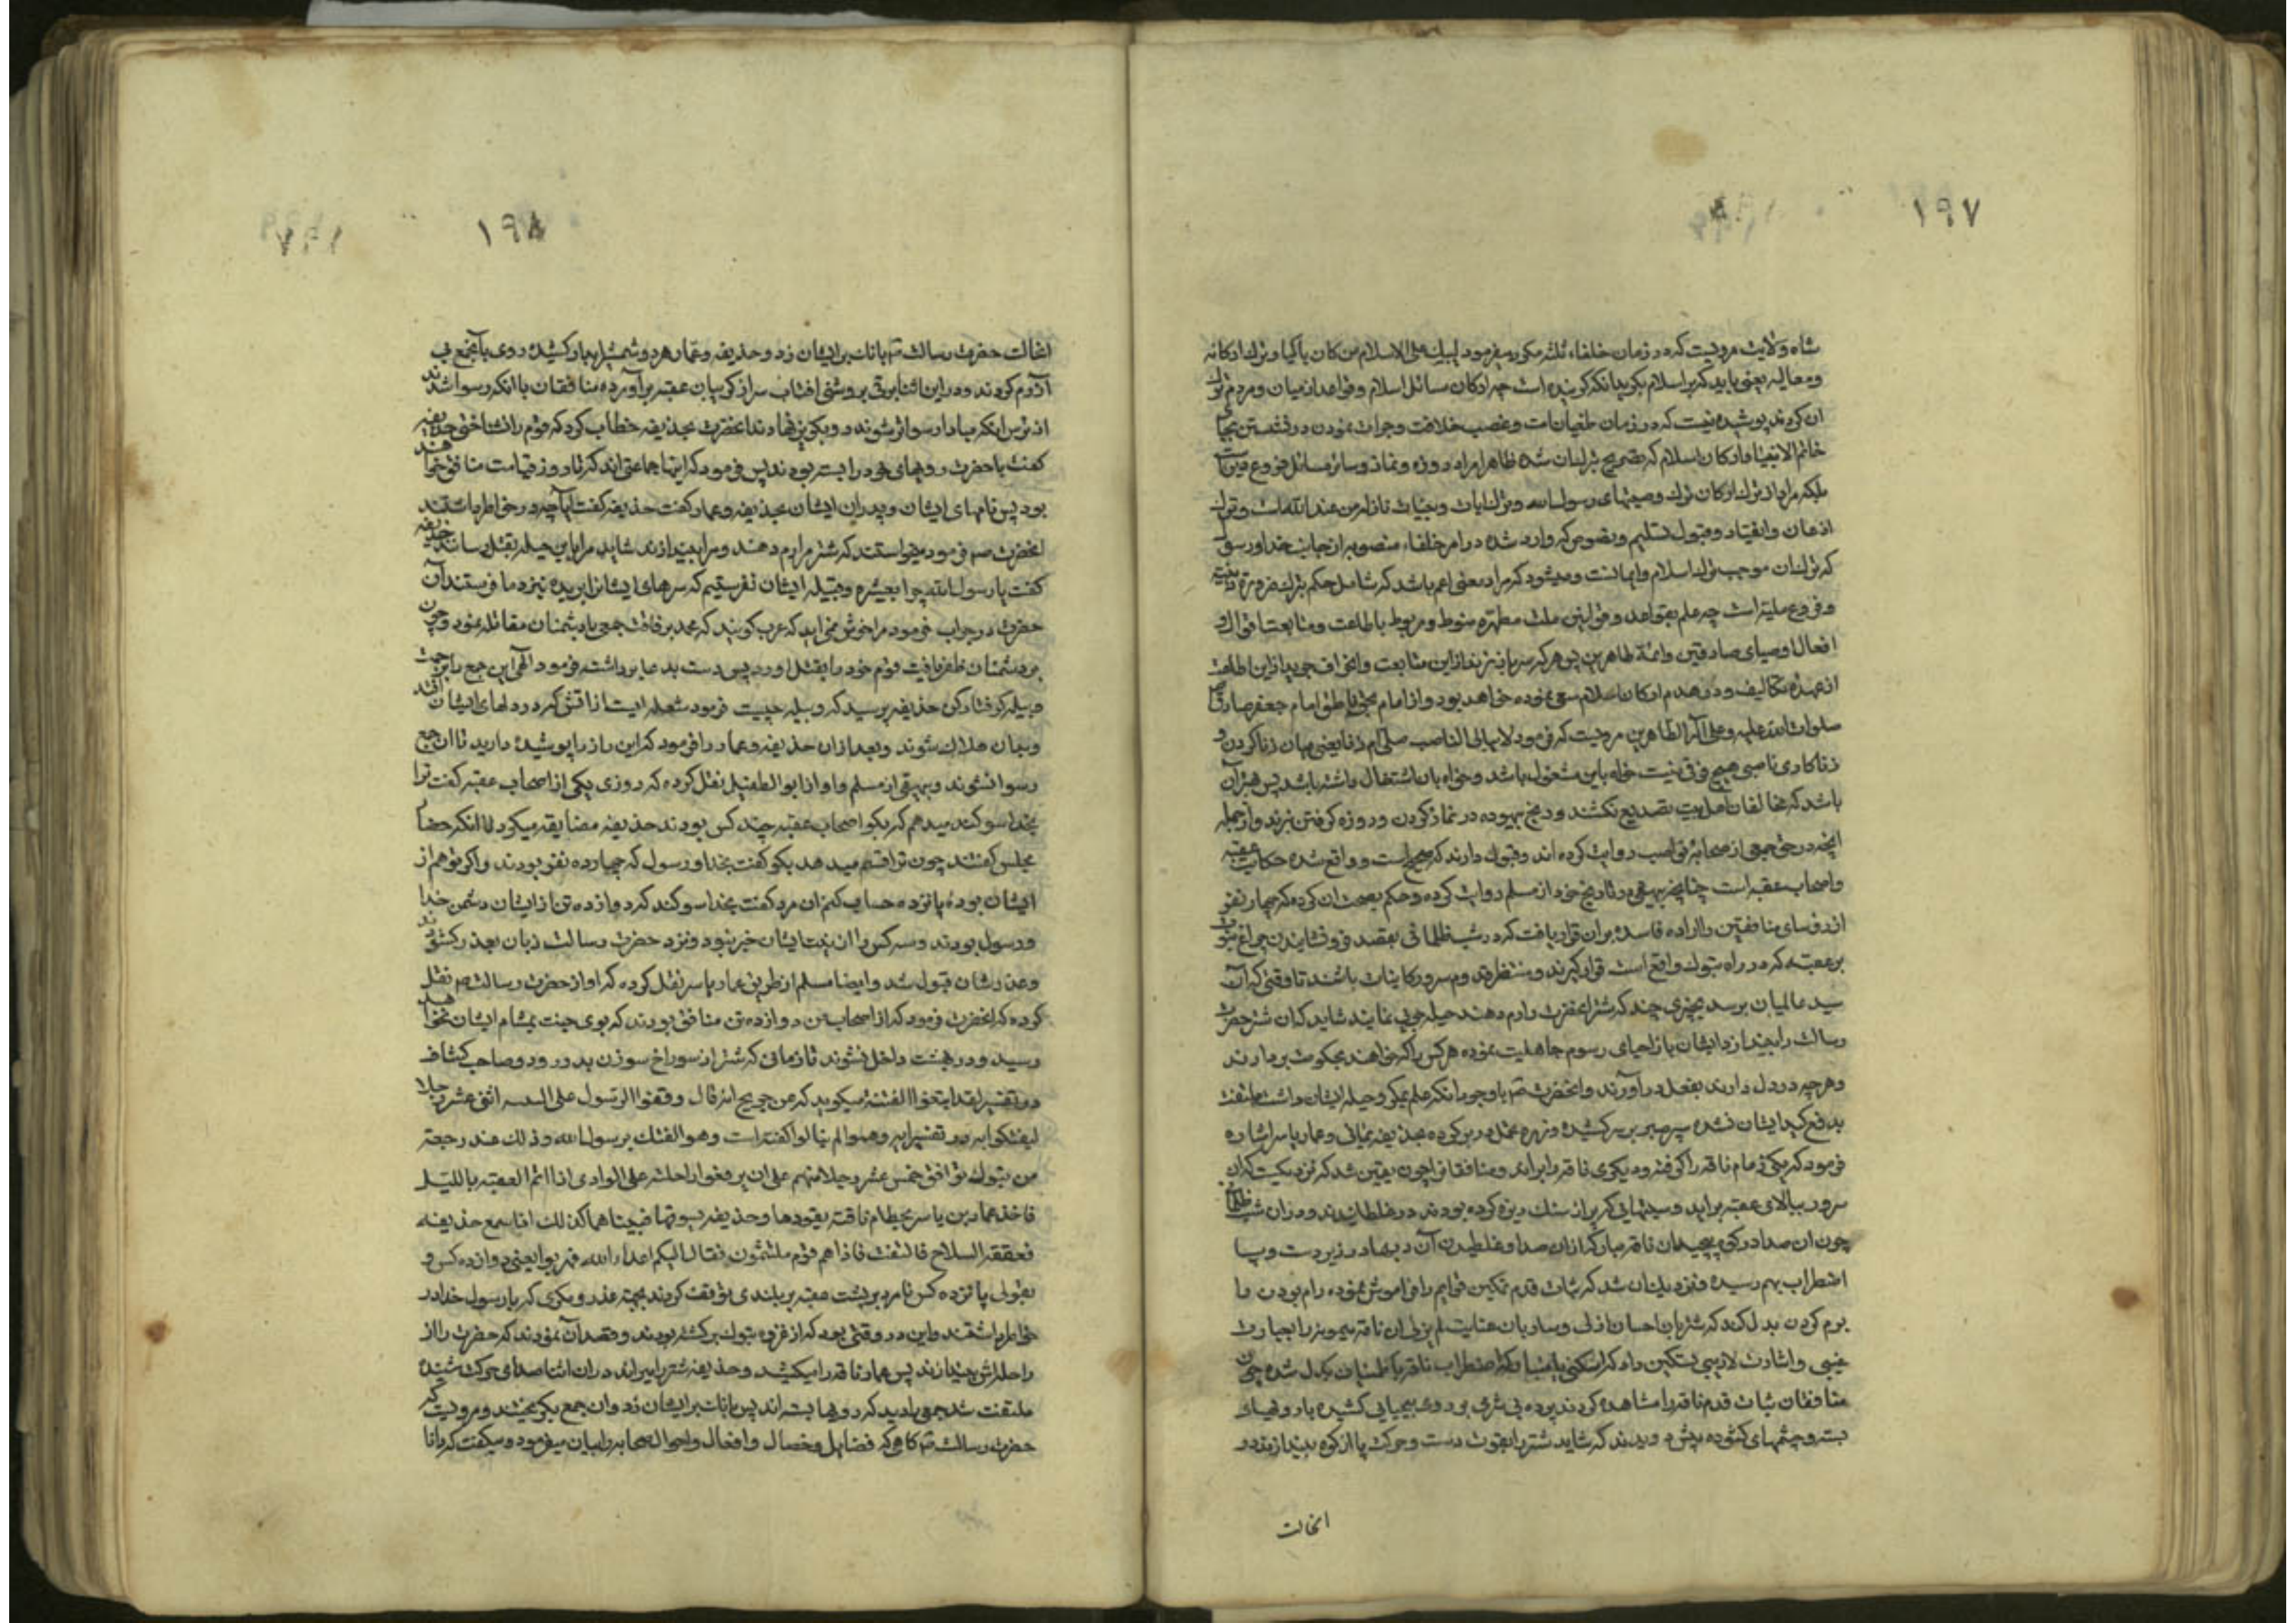 ١٩٧
شاه ولایت مرویست که در زمان خلفاء ثلثه مکرر میفرمود لیبک علی الاسلام من کان باکیا و ترك ارکانه
ومعالیه یعنی باید که بر اسلام بکرید انکه کرینده است چه ارکان مسائل اسلام وقواعد از میان و مردم ترك
ان کردند پوشیده نیست که در زمان طغیان امت وغصب خلافت وجرات نمودن در نشستن بجای
خاتم الانبیاء ارکان اسلام که بتصریح شده ظاهرا مراد روزه ونماز وسائر مسائل فروع
بلکه مراد از ترك ارکان ترك وصیتهای رسول الله وترك ایات وبینات نازله من عند الله است وترك
اذعان وانقیاد وقبول تسلیم ونصوص که وارد شده در امر خلفاء منصوبه از جانب خدا ورسول
که ترك ان موجب ترك اسلام وایمانست ومیشود که مراد معنی اعم باشد که شامل حکم بترك ضروریه دینیه
وفروع ملیه است چه علم بقواعد وقوانین ملت مطهره منوط ومربوط باطاعت ومتابعت اقوال و
افعال اوصیای صادقین وائمه طاهرین پس هر که سر باز زند از این متابعت وانحراف جوید از این اطاعت
از عهده تکالیف ودر هدم ارکان اسلام سعی نموده خواهد بود واز امام بحق ناطق امام جعفر صادق
صلوات الله علیه وعلی آله الطاهرین مرویست که فرمود لا یبالی الناصب صلی ام زنا یعنی میان زنا کردن و
زناکاری ناصبی هیچ فرقی نیست خواه باین مشغول باشد وخواه بان اشتغال داشته باشد پس بهتر آن
باشد که مخالفان اهل بیت تصدیع نکشند ورنج بیهوده در نماز کردن وروزه کرفتن نبرند واز جمله
انچه در حق جمعی از صحابه نواصب روایت کرده اند وقبول دارند که صحیح است و واقع شده حکایت عقبه
واصحاب عقبه است چنانچه بیهقی در تاریخ خود از مسلم روایت کرده وحکم بصحت ان کرده که چهار نفر
از رؤسای منافقین را اراده فاسده بران قرار یافت که در شب ظلمانی بقصد فرو نشانیدن چراغ نبوت
بر عقبه که در راه تبوك واقع است قرار کیرند ومنتظر قدوم سرور کاینات باشند تا وقتی که آن
سید عالمیان برسد بچیزی چند که شتر انحضرت را رم دهند حیله جویی نمایند شاید که ان شتر حضرت
رسالت را بیندازد ایشان باز احیای رسوم جاهلیت نموده هر کس را که خواهند بحکومت بر دارند
وهر چه در دل دارند بفعل در آورند وانحضرت ص با وجود انکه علم بمکر وحیله ایشان داشت ملتفت
بدفع کید ایشان نشده سپر صبر بر سر کشیده وزره تحمل در بر کرده بحذیفه یمانی وعمار یاسر اشاره
فرمود که یکی زمام ناقه را کرفته ودیکری ناقه را براند ومنافقان چون یقین شد که نزدیکست که ان
سرور ببالای عقبه براید وسیتهایی که پر از سنك ریزه کرده بودند در غلطانیدند ودر ان شب ظلمانی
چون ان صدا در کوه پیچید ان ناقه مبارکه از ان صدا وغلطیدن آن دبها در زیر دست وپا
اضطراب بهم رسیده ونزدیك ان شد که ثبات قدم تمکین قوایم را فراموش نموده رام بودن را
برم کردن بدل کند که شتربان احسان ازلی وساربان عنایت لم یزلی ان ناقه میمونه را بعبارت
غیبی واشارت لاریبی تسکین داد که اضطراب ناقه باطمینان بدل شده چون
منافقان ثبات قدم ناقه را مشاهده کردند پرده بی شرمی بر روی بیحیایی کشیده با رویهای
بسته وچشمهای کشوده پیش دویدند که شاید شتر را بقوت دست وحرکت پا از کوه بیندازند در
انحالت
١٩٨
انحالت حضرت رسالت ص بانك بر ایشان زد وحذیفه وعمار هر دو شمشیرها بر کشیده روی بآنجمع بی
آزرم کردند ودر این اثنا برقی بروشنی افتاب سر از کریبان عقبه بر آورده منافقان با انکه رسوا شدند
از ترس اینکه مبادا رسواتر شوند رو بکریز نهادند انحضرت بحذیفه خطاب کرد که قوم را شناختی حذیفه
کفت یا حضرت رویهای خود را بسته بودند پس فرمود که اینها جماعتی اند که تا روز قیامت منافق خواهند
بود پس نامهای ایشان وپدران ایشان بحذیفه وعمار کفت حذیفه کفت اینها چه در خاطر داشتند
انحضرت ص فرمود میخواستند که شتر مرا رم دهند ومرا بیندازند شاید مرا باین حیله بقتل رسانند حذیفه
کفت یا رسول الله چرا بعشیره وقبیله ایشان نفرستیم که سرهای ایشان را بریده نزد ما فرستند آن
حضرت در جواب فرمود مرا خوش نمی آید که عرب کویند که محمد برفاقت جمعی با دشمنان مقاتله نمود وچون
بر دشمنان ظفر یافت قوم خود را بقتل اورد پس دست بدعا برداشته فرمود الهی این جمع را بزحمت
دبیله کرفتار کن حذیفه پرسید که دبیله چیست فرمود شعله ایست از اتش که در دلهای ایشان افتد
وبدان هلاك شوند وبعد از ان حذیفه وعمار را فرمود که این راز را پوشیده دارید تا ان جمع
رسوا نشوند وبیهقی از مسلم واو از ابو الطفیل نقل کرده که روزی یکی از اصحاب عقبه کفت ترا
بخدا سوکند میدهم که بکو اصحاب عقبه چند کس بودند حذیفه مضایقه میکرد تا انکه حضار
مجلس کفتند چون ترا قسم میدهد بکو کفت بخدا ورسول که چهارده نفر بودند واکر تو هم از
ایشان بودهٔ پانزده حساب کنم ان مرد کفت بخدا سوکند که دوازده تن از ایشان دشمن خدا
ورسول بودند وسه کس را از نیت ایشان خبر نبود ونزد حضرت رسالت زبان بعذر کشودند
وعذرشان قبول شد وایضا مسلم از طریق عمار یاسر نقل کرده که او از حضرت رسالت ص نقل
کرده که انحضرت فرمود که از اصحاب من دوازده تن منافق بودند که بوی جنت بمشام ایشان نخواهد
رسید ودر بهشت داخل نشوند تا زمانی که شتر از سوراخ سوزن بدر رود وصاحب کشاف
در تفسیر لقد ابتغوا الفتنة میکوید که عن جریج انه قال وقفوا لرسول علی اثنی عشر رجلا
لیفتکوا به ودر تفسیر ایه وهموا بما لم ینالوا کفته است وهو الفتك برسول الله وذلك عند رجعته
من تبوك توافق خمس عشر رجلا منهم علی ان یدفعوا راحلته علی الوادی اذا اتم العقبة باللیل
فاخذ عمار بن یاسر بخطام ناقته یقودها وحذیفه یسوقها فبیناهما کذلك اذا سمع حذیفه
بقعقعة السلاح فالتفت فاذا هم قوم ملتثمون فقال الیکم اعداء الله فهربوا یعنی دوازده کس و
بقولی پانزده کس نامرد بر پشت عقبه بر بلندی توقف کردند بجهة غدر ومکری که با رسول خدا در
خاطر داشتند واین در وقتی بود که از غزوه تبوك بر کشته بودند وقصد آن نمودند که حضرت را از
راحله اش بیندازند پس عمار ناقه را میکشید وحذیفه شتر را میراند در ان اثنا صدای حرکت شنیده
ملتفت شد جمعی را دید که رویها بسته اند پس بانك بر ایشان زد وان جمع بکریختند ومرویست که
حضرت رسالت ص کاهی که فضایل وخصال وافعال واحوال صحابه را بیان میفرمود ومیکفت که دانا